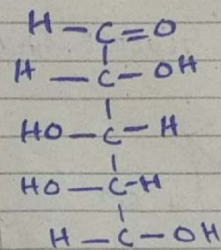 H — C = O
H — C — OH
HO — C — H
HO — C - H
H — C — OH